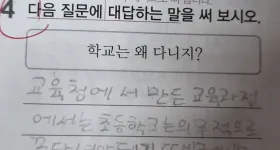 4 다음 질문에 대답하는 말을 써 보시오.
학교는 왜 다니지?
교육청에서 만든 교육과정
에서는 초등학교는의무적으로